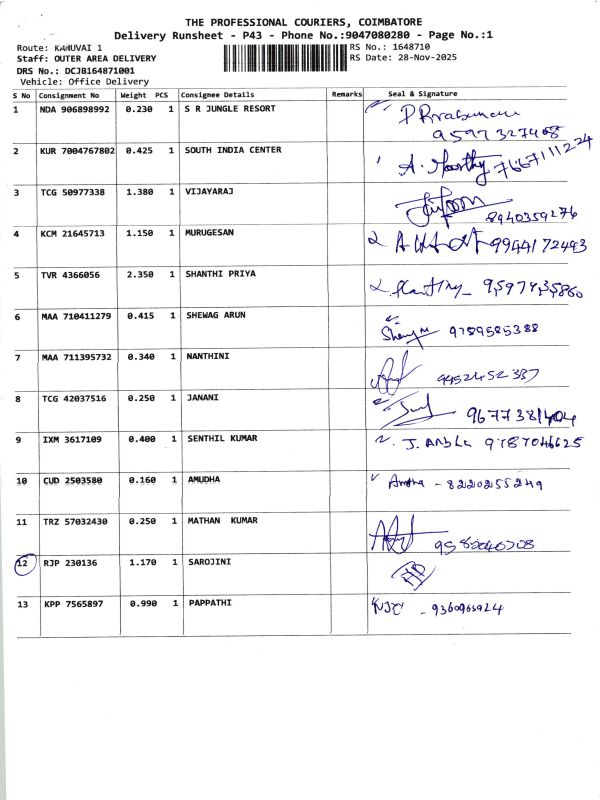 THE PROFESSIONAL COURIERS, COIMBATORE
Delivery Runsheet - P43 - Phone No.:9047080280 - Page No.:1
Route: KANUVAI 1 RS No.: 1648710
Staff: OUTER AREA DELIVERY RS Date: 28-Nov-2025
DRS No.: DCJB164871001
Vehicle: Office Delivery
S No Consignment No Weight PCS Consignee Details Remarks Seal & Signature
1 NDA 906898992 0.230 1 S R JUNGLE RESORT
9597327408
2 KUR 7004767802 0.425 1 SOUTH INDIA CENTER A. Moorthy 7667111224
3 TCG 50977338 1.380 1 VIJAYARAJ 8940359276
4 KCM 21645713 1.150 1 MURUGESAN 9944172493
5 TVR 4366056 2.350 1 SHANTHI PRIYA 9597435860
6 MAA 710411279 0.415 1 SHEWAG ARUN 9789585388
7 MAA 711395732 0.340 1 NANTHINI 9452452337
8 TCG 42037516 0.250 1 JANANI 9677381404
9 IXM 3617109 0.400 1 SENTHIL KUMAR 9787046625
10 CUD 2503580 0.160 1 AMUDHA - 8220255249
11 TRZ 57032430 0.250 1 MATHAN KUMAR
12 RJP 230136 1.170 1 SAROJINI
13 KPP 7565897 0.990 1 PAPPATHI - 9360965924